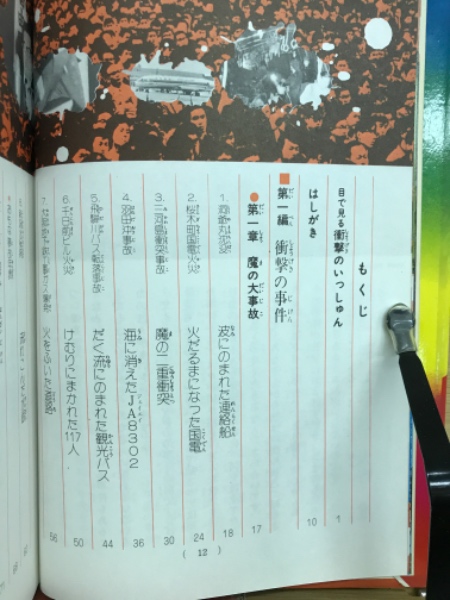 もくじ
目で見る衝撃のいっしゅん 1
はしがき 10
■第一編 衝撃の事件
●第一章 魔の大事故 17
1. 洞爺丸沈没 波にのまれた連絡船 18
2. 桜木町国電火災 火だるまになった国電 24
3. 三河島衝突事故 魔の二重衝突 30
4. 羽田沖事故 海に消えたJA8302 36
5. 飛騨川バス転落事故 だく流にのまれた観光バス 44
6. 千日前ビル火災 けむりにまかれた117人 50
7. 火をふいた道路 56
( 12 )